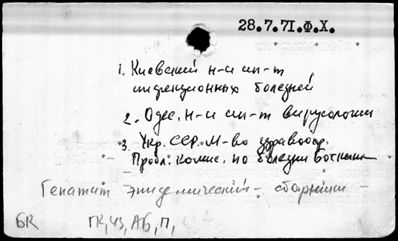 28.7.71.Ф.Х.
1. Киевский н-и ин-т
инфекционных болезней
2. Одес. н-и ин-т вирусологии
3. Укр. ССР. М-во здравоохр.
Пробл. комис. по болезни Боткина
Гепатит эпидемический - сборники
БR ГК, ЧЗ, АБ, П,